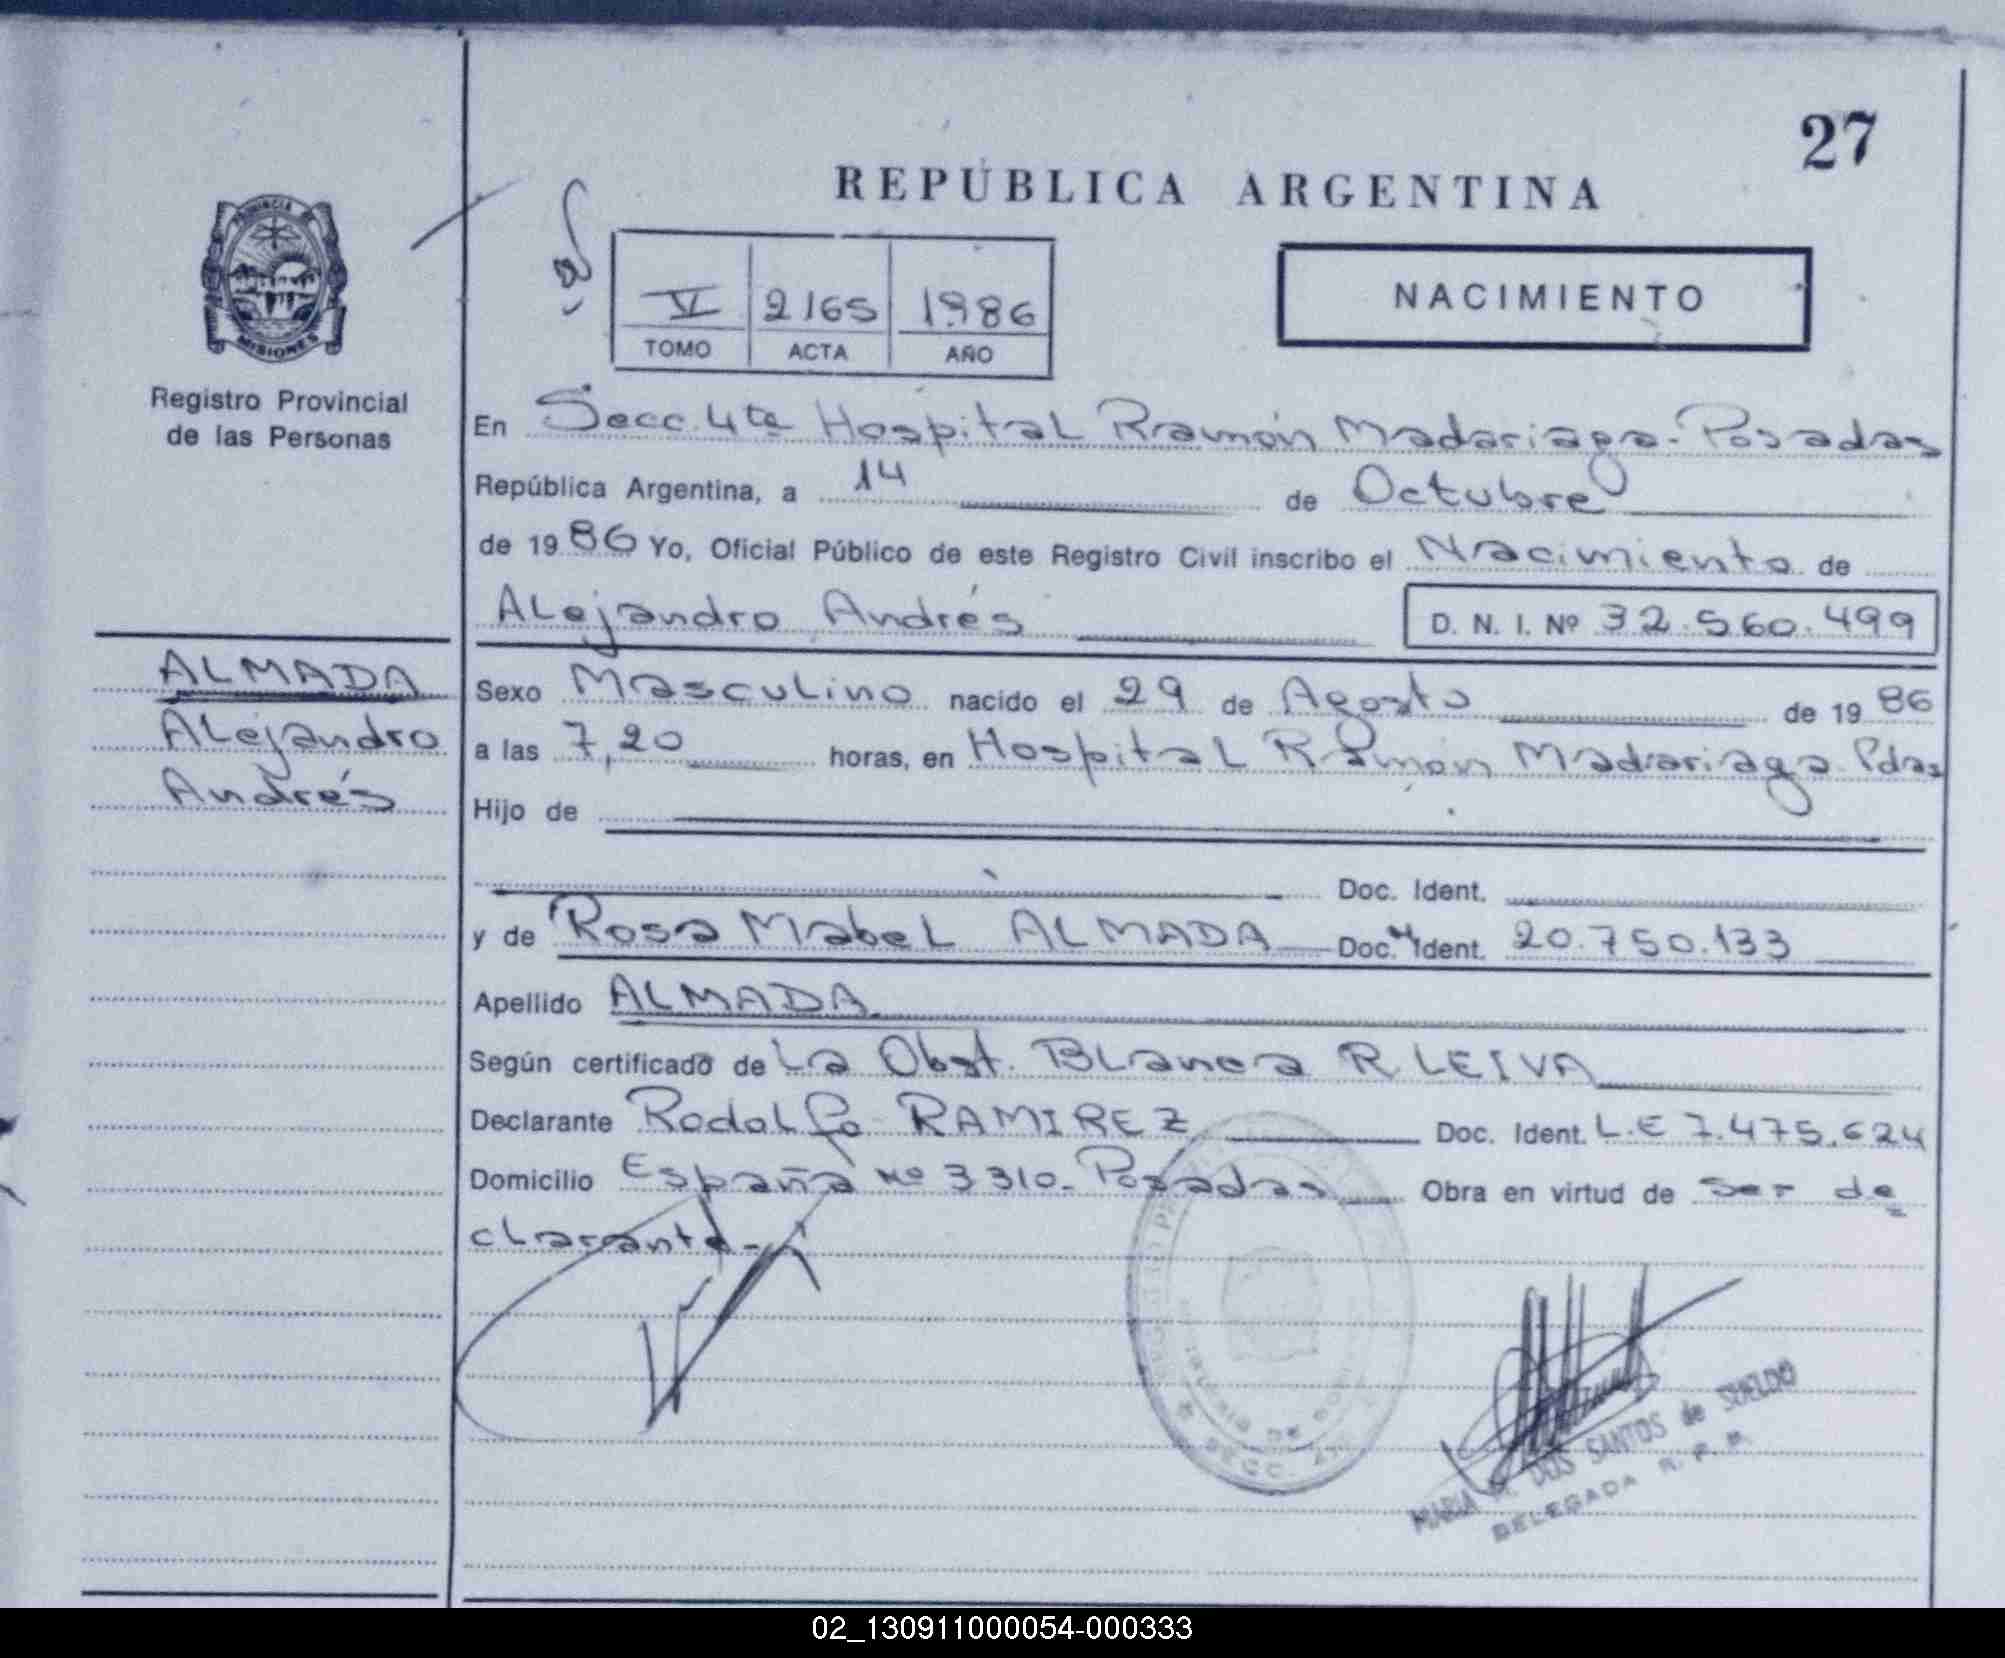 27
REPÚBLICA ARGENTINA
PROVINCIA DE
MISIONES
Registro Provincial
de las Personas
V 2165 1986
TOMO ACTA AÑO
NACIMIENTO
En Secc. 4ta Hospital Ramón Madariaga - Posadas
República Argentina, a 14 de Octubre
de 1986 Yo, Oficial Público de este Registro Civil inscribo el Nacimiento de
Alejandro Andrés D. N. I. Nº 32.560.499
ALMADA
Alejandro
Andrés
Sexo Masculino nacido el 29 de Agosto de 1986
a las 7,20 horas, en Hospital Ramón Madariaga Pdas
Hijo de
Doc. Ident.
y de Rosa Mabel ALMADA Doc. Ident. 20.750.133
Apellido ALMADA
Según certificado de La Obst. Blanca R. LEIVA
Declarante Rodolfo RAMIREZ Doc. Ident. L.E 7.475.624
Domicilio España Nº 3310 - Posadas Obra en virtud de ser de
clarante.-
SECC. 4ta
MARIA DOS SANTOS de SUELDO
DELEGADA R. P. P.
02_130911000054-000333